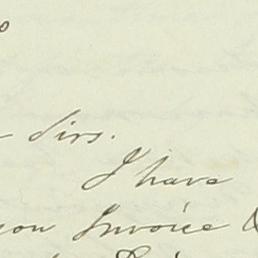 Sirs.
I have
you Invoice &